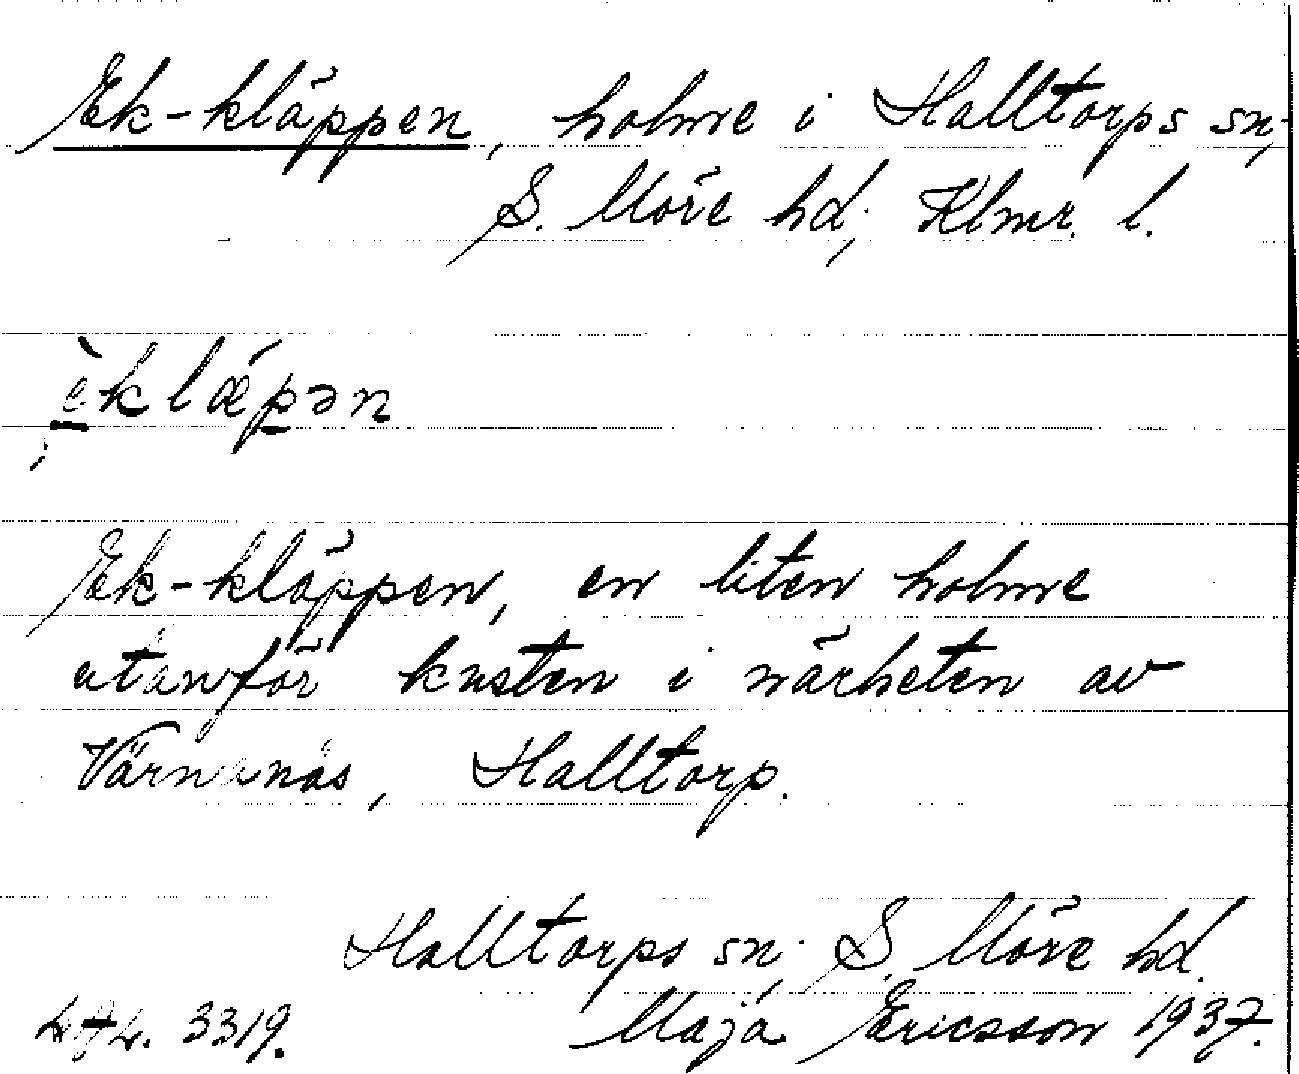 Ek-kläppen, holme i Halltorps sn,
S. Möre hd, Klmr. l.
èklǽpən
Ek-kläppen, en liten holme
utanför kusten i närheten av
Värnanäs, Halltorp.
Halltorps sn, S. Möre hd.
3319. Maja Ericsson 1937.